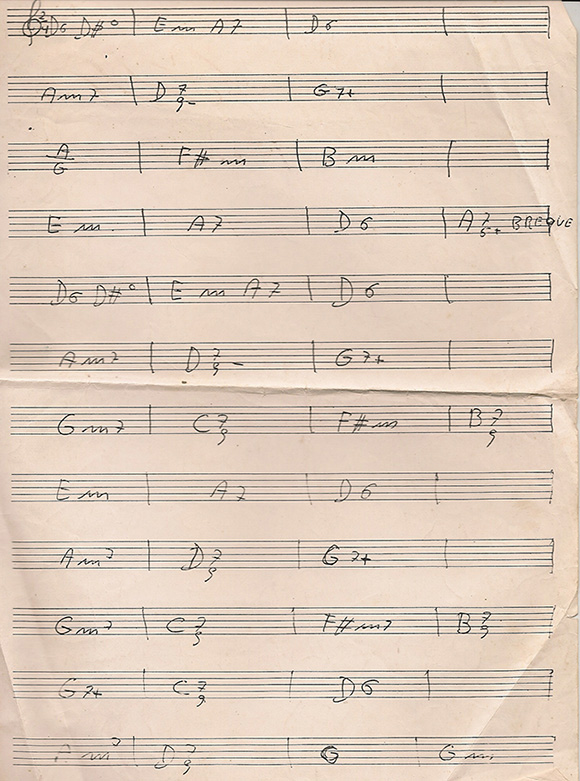 2/4 D6 D#° | Em A7 | D6 |
Am7 | D7 9- | G7+ |
A/G | F#m | Bm |
Em | A7 | D6 | A7 5+ BREQUE
D6 D#° | Em A7 | D6 |
Am7 | D7 9- | G7+ |
Gm7 | C7 9 | F#m | B7 9
Em | A7 | D6 |
Am7 | D7 9 | G7+ |
Gm7 | C7 9 | F#m7 | B7 9
G7+ | C7 9 | D6 |
Am7 | D7 9 | G | Gm